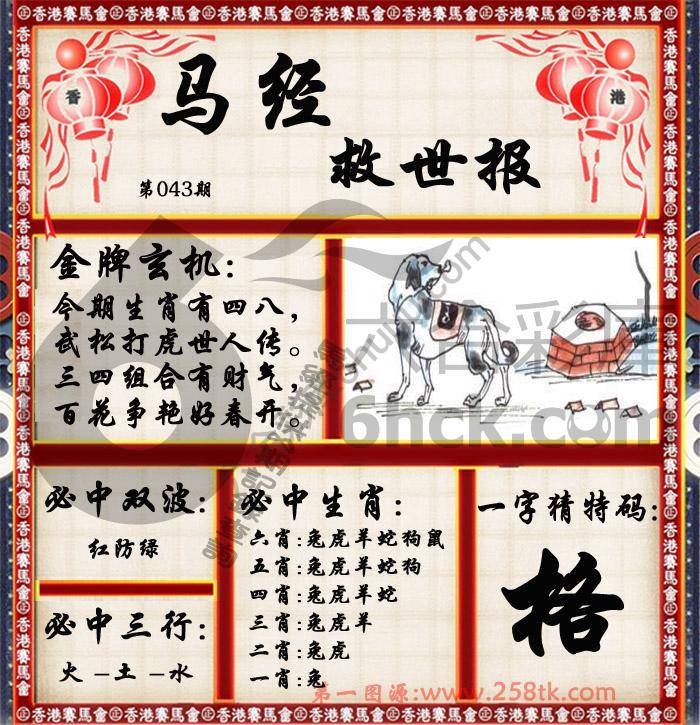 香港賽馬會
香
港
马经
救世报
第043期
金牌玄机：
今期生肖有四八，
武松打虎世人传。
三四组合有财气，
百花争艳好春开。
六合彩库
6hck.com
必中双波：
红防绿
必中三行：
火－土－水
必中生肖：
六肖：兔虎羊蛇狗鼠
五肖：兔虎羊蛇狗
四肖：兔虎羊蛇
三肖：兔虎羊
二肖：兔虎
一肖：兔
一字猜特码：
格
第一图源:www.258tk.com